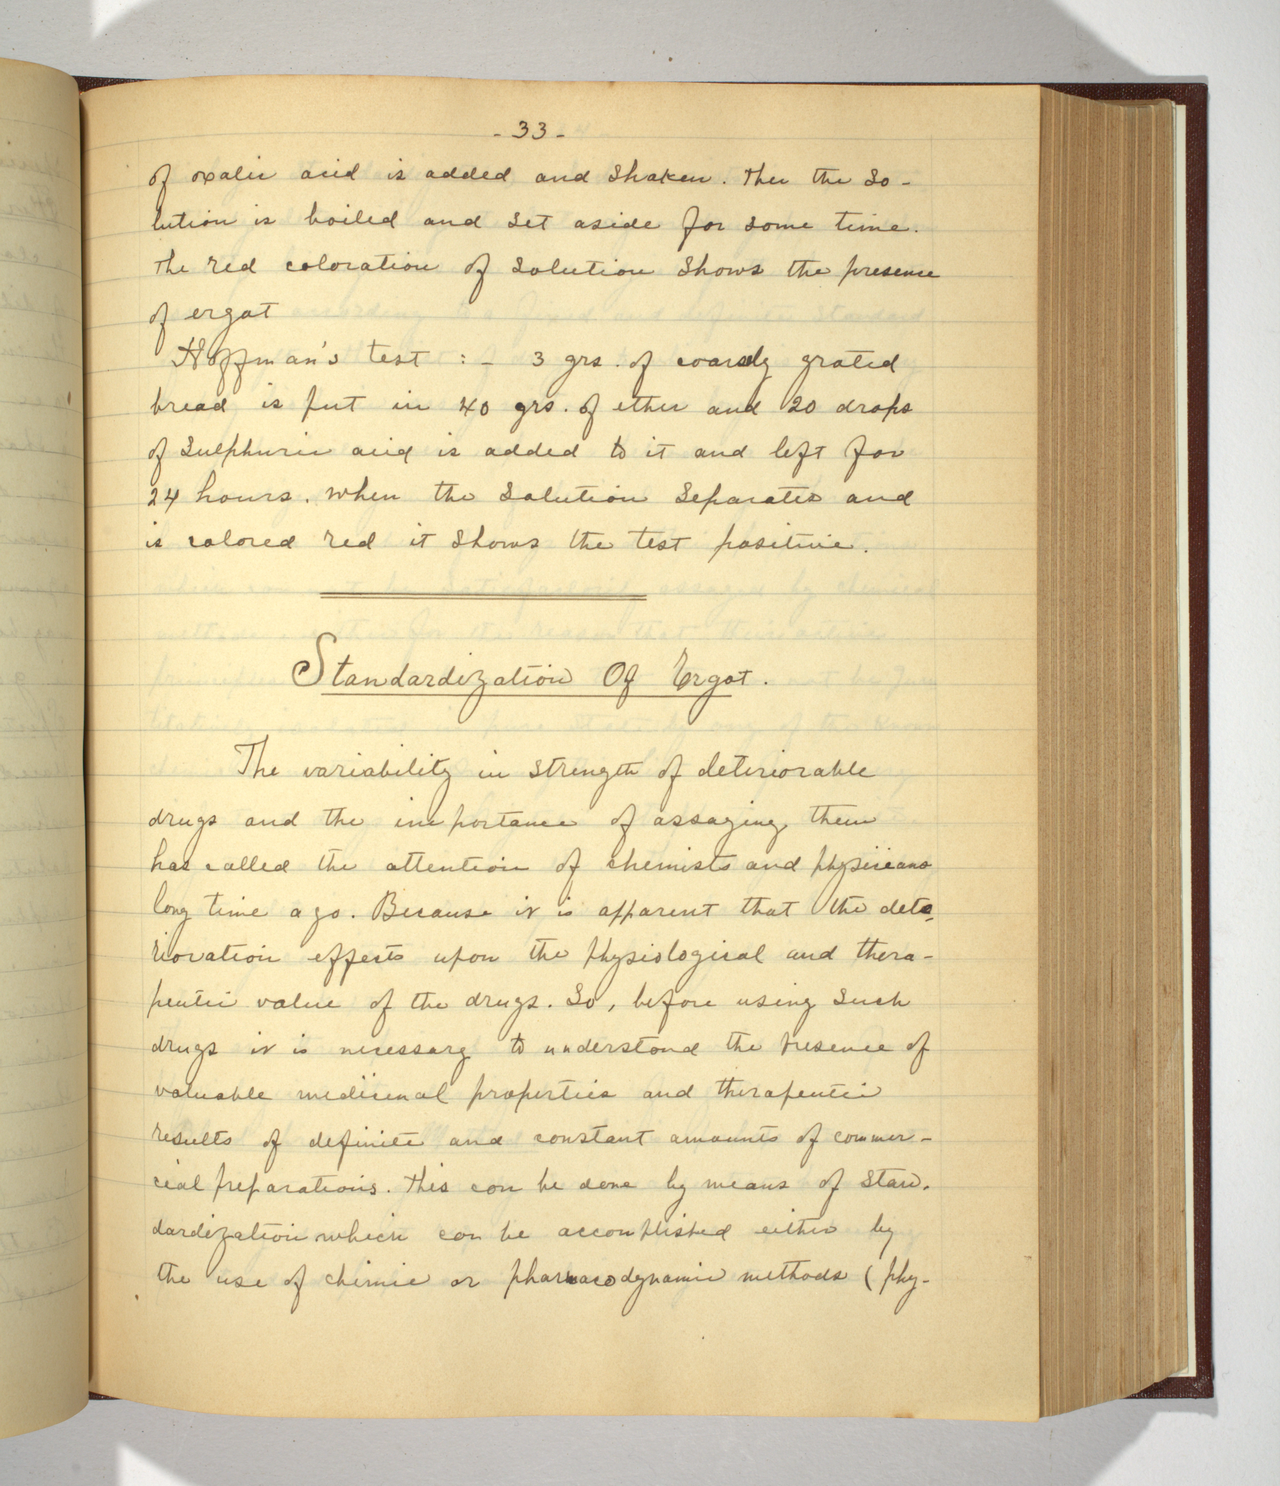 - 33 -
of oxalic acid is added and shaken. Then the so-
lution is boiled and set aside for some time.
The red coloration of solution shows the presence
of ergot
Hoffman's test : - 3 grs. of coarsely grated
bread is put in 40 grs. of ether and 20 drops
of sulphuric acid is added to it and left for
24 hours. When the solution separates and
is colored red it shows the test positive.
Standardization Of Ergot.
The variability in strength of deteriorable
drugs and the importance of assaying them
has called the attention of chemists and physicians
long time ago. Because it is apparent that the dete-
rioration effects upon the physiological and thera-
peutic value of the drugs. So, before using such
drugs it is necessary to understand the presence of
valuable medicinal properties and therapeutic
results of definite and constant amounts of commer-
cial preparations. This can be done by means of stan-
dardization which can be accomplished either by
the use of chimic or pharmacodynamic methods (phy-